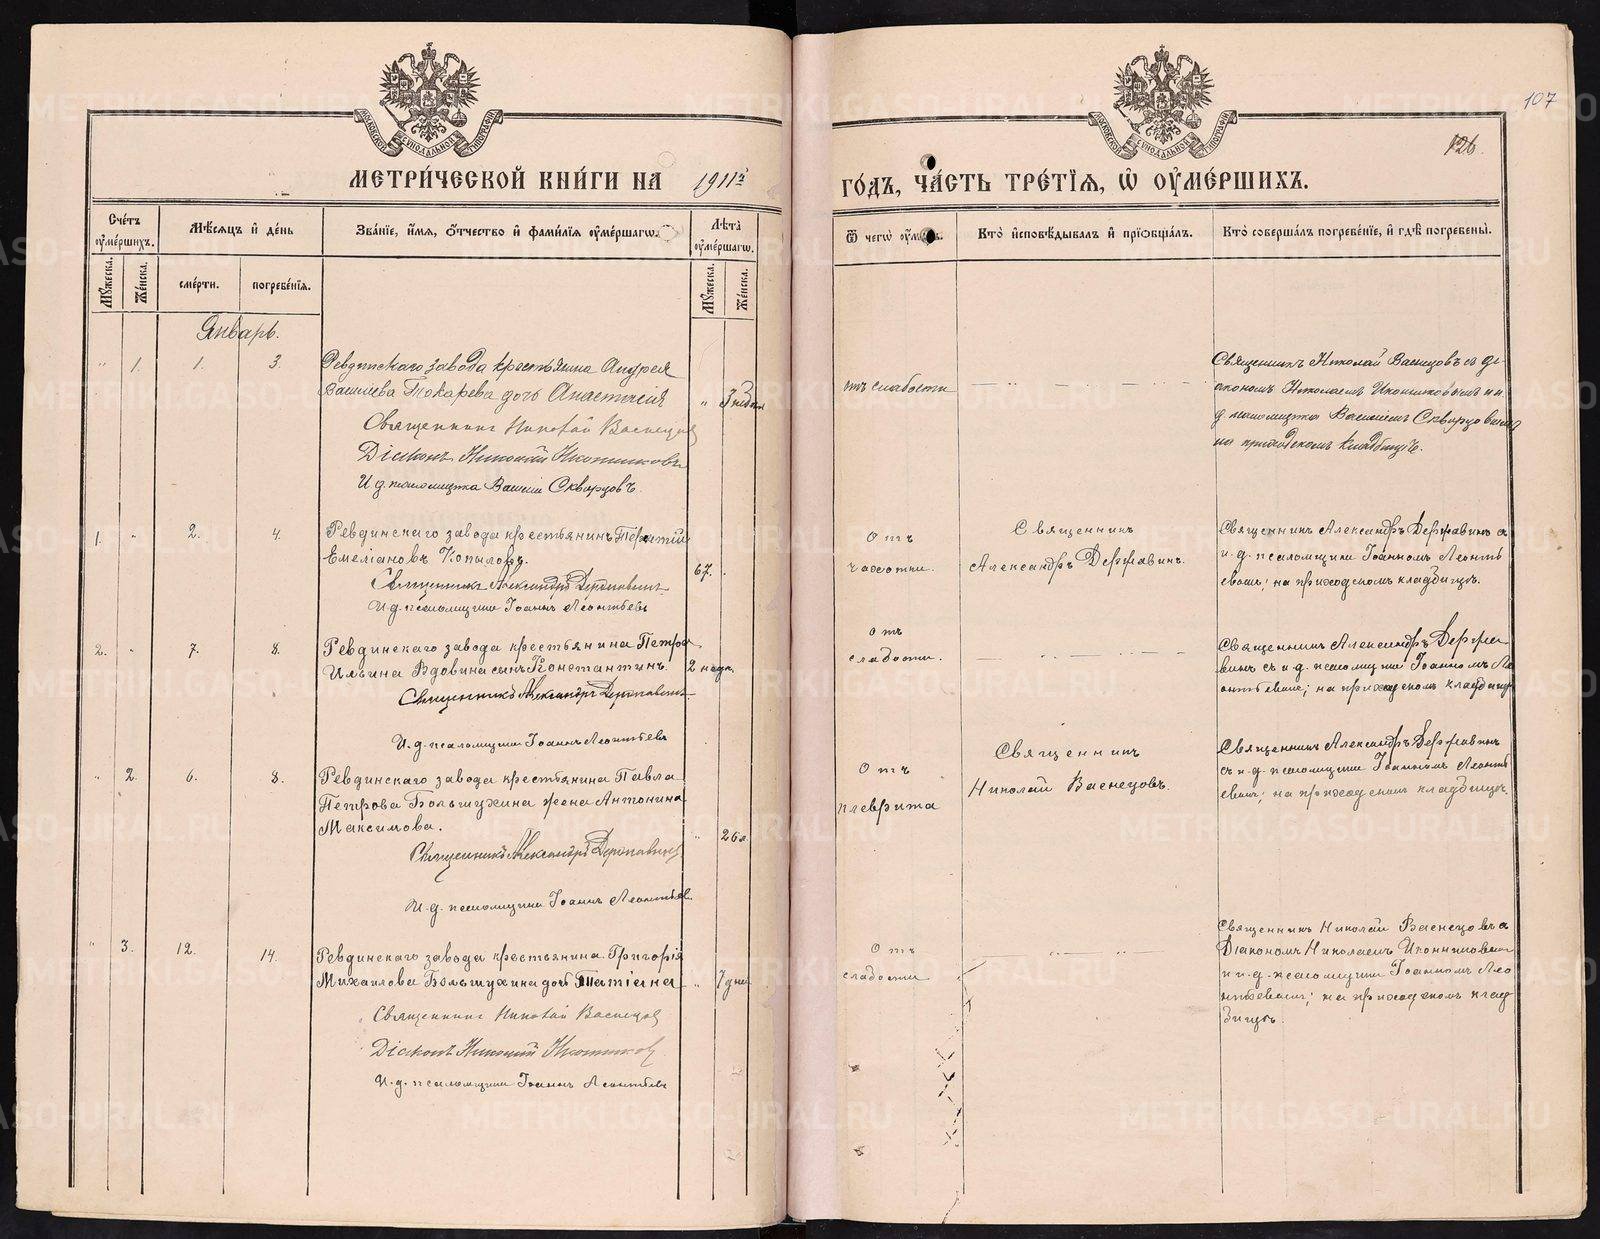 107
126.
МОСКОВСКОЙ СѴНОДАЛЬНОЙ ТИПОГРАФІИ
МОСКОВСКОЙ СѴНОДАЛЬНОЙ ТИПОГРАФІИ
МЕТРИ́ЧЕСКОЙ КНИ́ГИ НА 1911й
ГО́ДЪ, ЧА́СТЬ ТРЕ́ТІѦ, Ѽ ОУ҆МЕ́РШИХЪ.
Сче́тъ оу҆ме́ршихъ.
Мѣ́сяцъ и҆ де́нь
Зва́нїе, и҆́мѧ, ѻ҆́тчество и҆ фами́лїѧ оу҆ме́ршагѡ.
Лѣ́та оу҆ме́ршагѡ.
Ѿ чегѡ̀ оу҆́меръ.
Кто̀ и҆сповѣ́дывалъ и҆ прїѡбща́лъ.
Кто̀ соверша́лъ погребе́нїе, и҆ гдѣ̀ погребены̀.
Мꙋ́жеска.
Же́нска.
сме́рти.
погребе́нїѧ.
Мꙋ́жеска.
Же́нска.
Январь.
" 1. 1. 3.
Ревдинскаго завода крестьянина Андрея
Василіева Токарева дочь Анастасія
" 3 нед
отъ слабости
Священникъ Николай Васнецовъ
Діаконъ Николай Иконниковъ
И.д. псаломщика Василій Скворцовъ.
Священникъ Николай Васнецовъ съ ді-
акономъ Николаемъ Иконниковымъ и и.
д. псаломщика Василіемъ Скворцовымъ
на приходскомъ кладбищѣ.
1. " 2. 4.
Ревдинскаго завода крестьянинъ Терентій
Емеліановъ Копыловъ.
67.
Священникъ Александръ Державинъ
И.д. псаломщика Іоаннъ Леонтьевъ
Отъ
чахотки.
Священникъ
Александръ Державинъ.
Священникъ Александръ Державинъ съ
и.д. псаломщика Іоанномъ Леонть
евымъ; на приходскомъ кладбищѣ.
2. " 7. 8.
Ревдинскаго завода крестьянина Петра
Ильина Вдовина сынъ Константинъ.
2 нед.
Священникъ Александръ Державинъ
И.д. псаломщика Іоаннъ Леонтьевъ
отъ
слабости.
Священникъ Александръ Держа
винъ съ и.д. псаломщика Іоанномъ Ле
онтьевымъ; на приходскомъ кладбищѣ
" 2. 6. 8.
Ревдинскаго завода крестьянина Павла
Петрова Большухина жена Антонина
Максимова.
" 26 л.
Священникъ Александръ Державинъ
И.д. псаломщика Іоаннъ Леонтьевъ.
Отъ
плеврита
Священникъ
Николай Васнецовъ.
Священникъ Александръ Державинъ
съ и.д. псаломщика Іоанномъ Леонть
евымъ; на приходскомъ кладбищѣ.
" 3. 12. 14.
Ревдинскаго завода крестьянина Григорія
Михаилова Большухина дочь Татіана
" 7 дне
Священникъ Николай Васнецовъ
Діаконъ Николай Иконниковъ
И.д. псаломщика Іоаннъ Леонтьевъ
Отъ
слабости
Священникъ Николай Васнецовъ съ
Діакономъ Николаемъ Иконниковымъ
и и.д. псаломщика Іоанномъ Лео
нтьевымъ; на приходскомъ клад
бищѣ.
METRIKI.GASO-URAL.RU